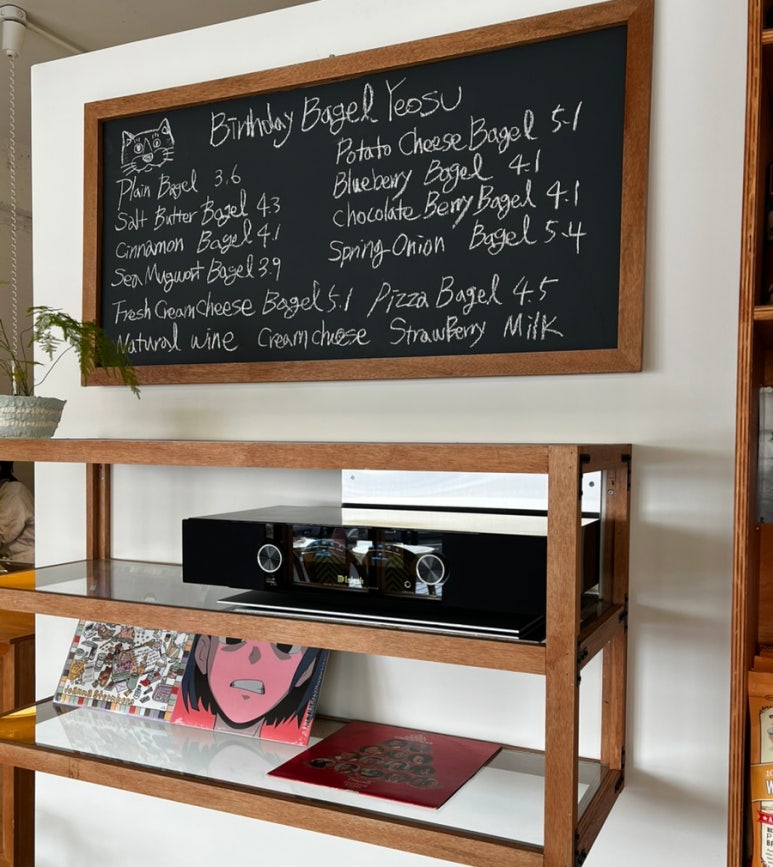 Birthday Bagel Yeosu
Plain Bagel 3.6
Salt Butter Bagel 4.3
Cinnamon Bagel 4.1
Sea Mugwort Bagel 3.9
Fresh Cream cheese Bagel 5.1
Potato Cheese Bagel 5.1
Blueberry Bagel 4.1
chocolate Berry Bagel 4.1
Spring Onion Bagel 5.4
Pizza Bagel 4.5
Natural wine Cream cheese StrawBerry Milk